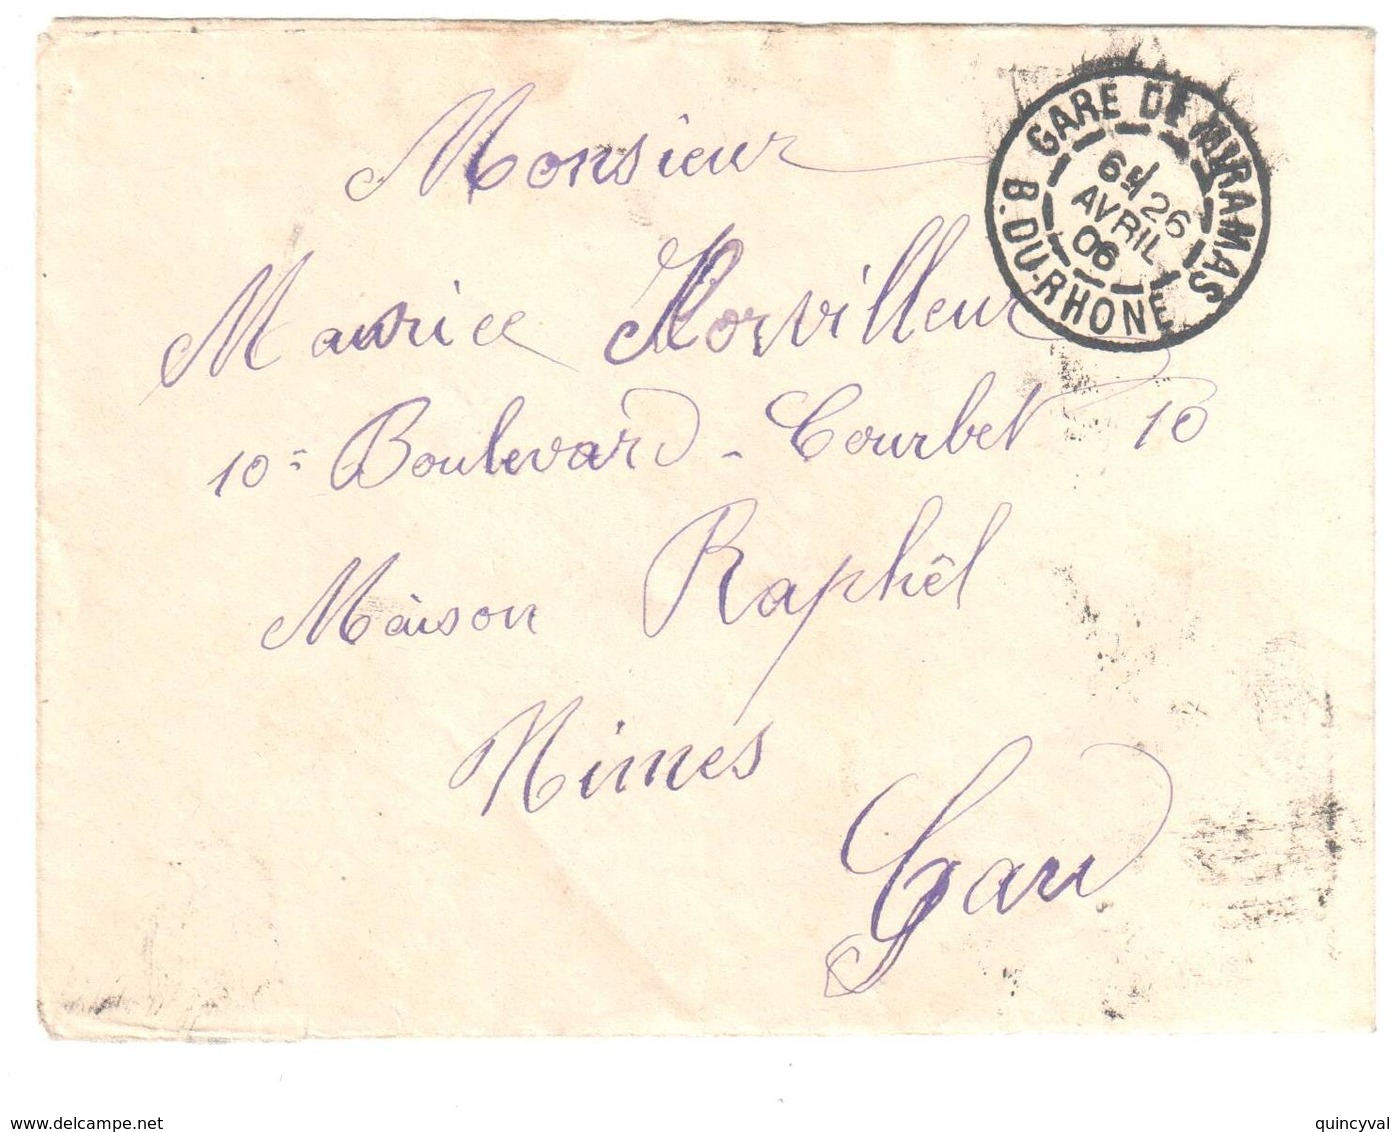 Monsieur
Maurice Horvilleur
10 = Boulevard - Courbet 10
Maison Raphêl
Nimes
Gard
GARE DE MIRAMAS
B. DU-RHONE
6E 26
AVRIL
06
delcampe.net
quincyval